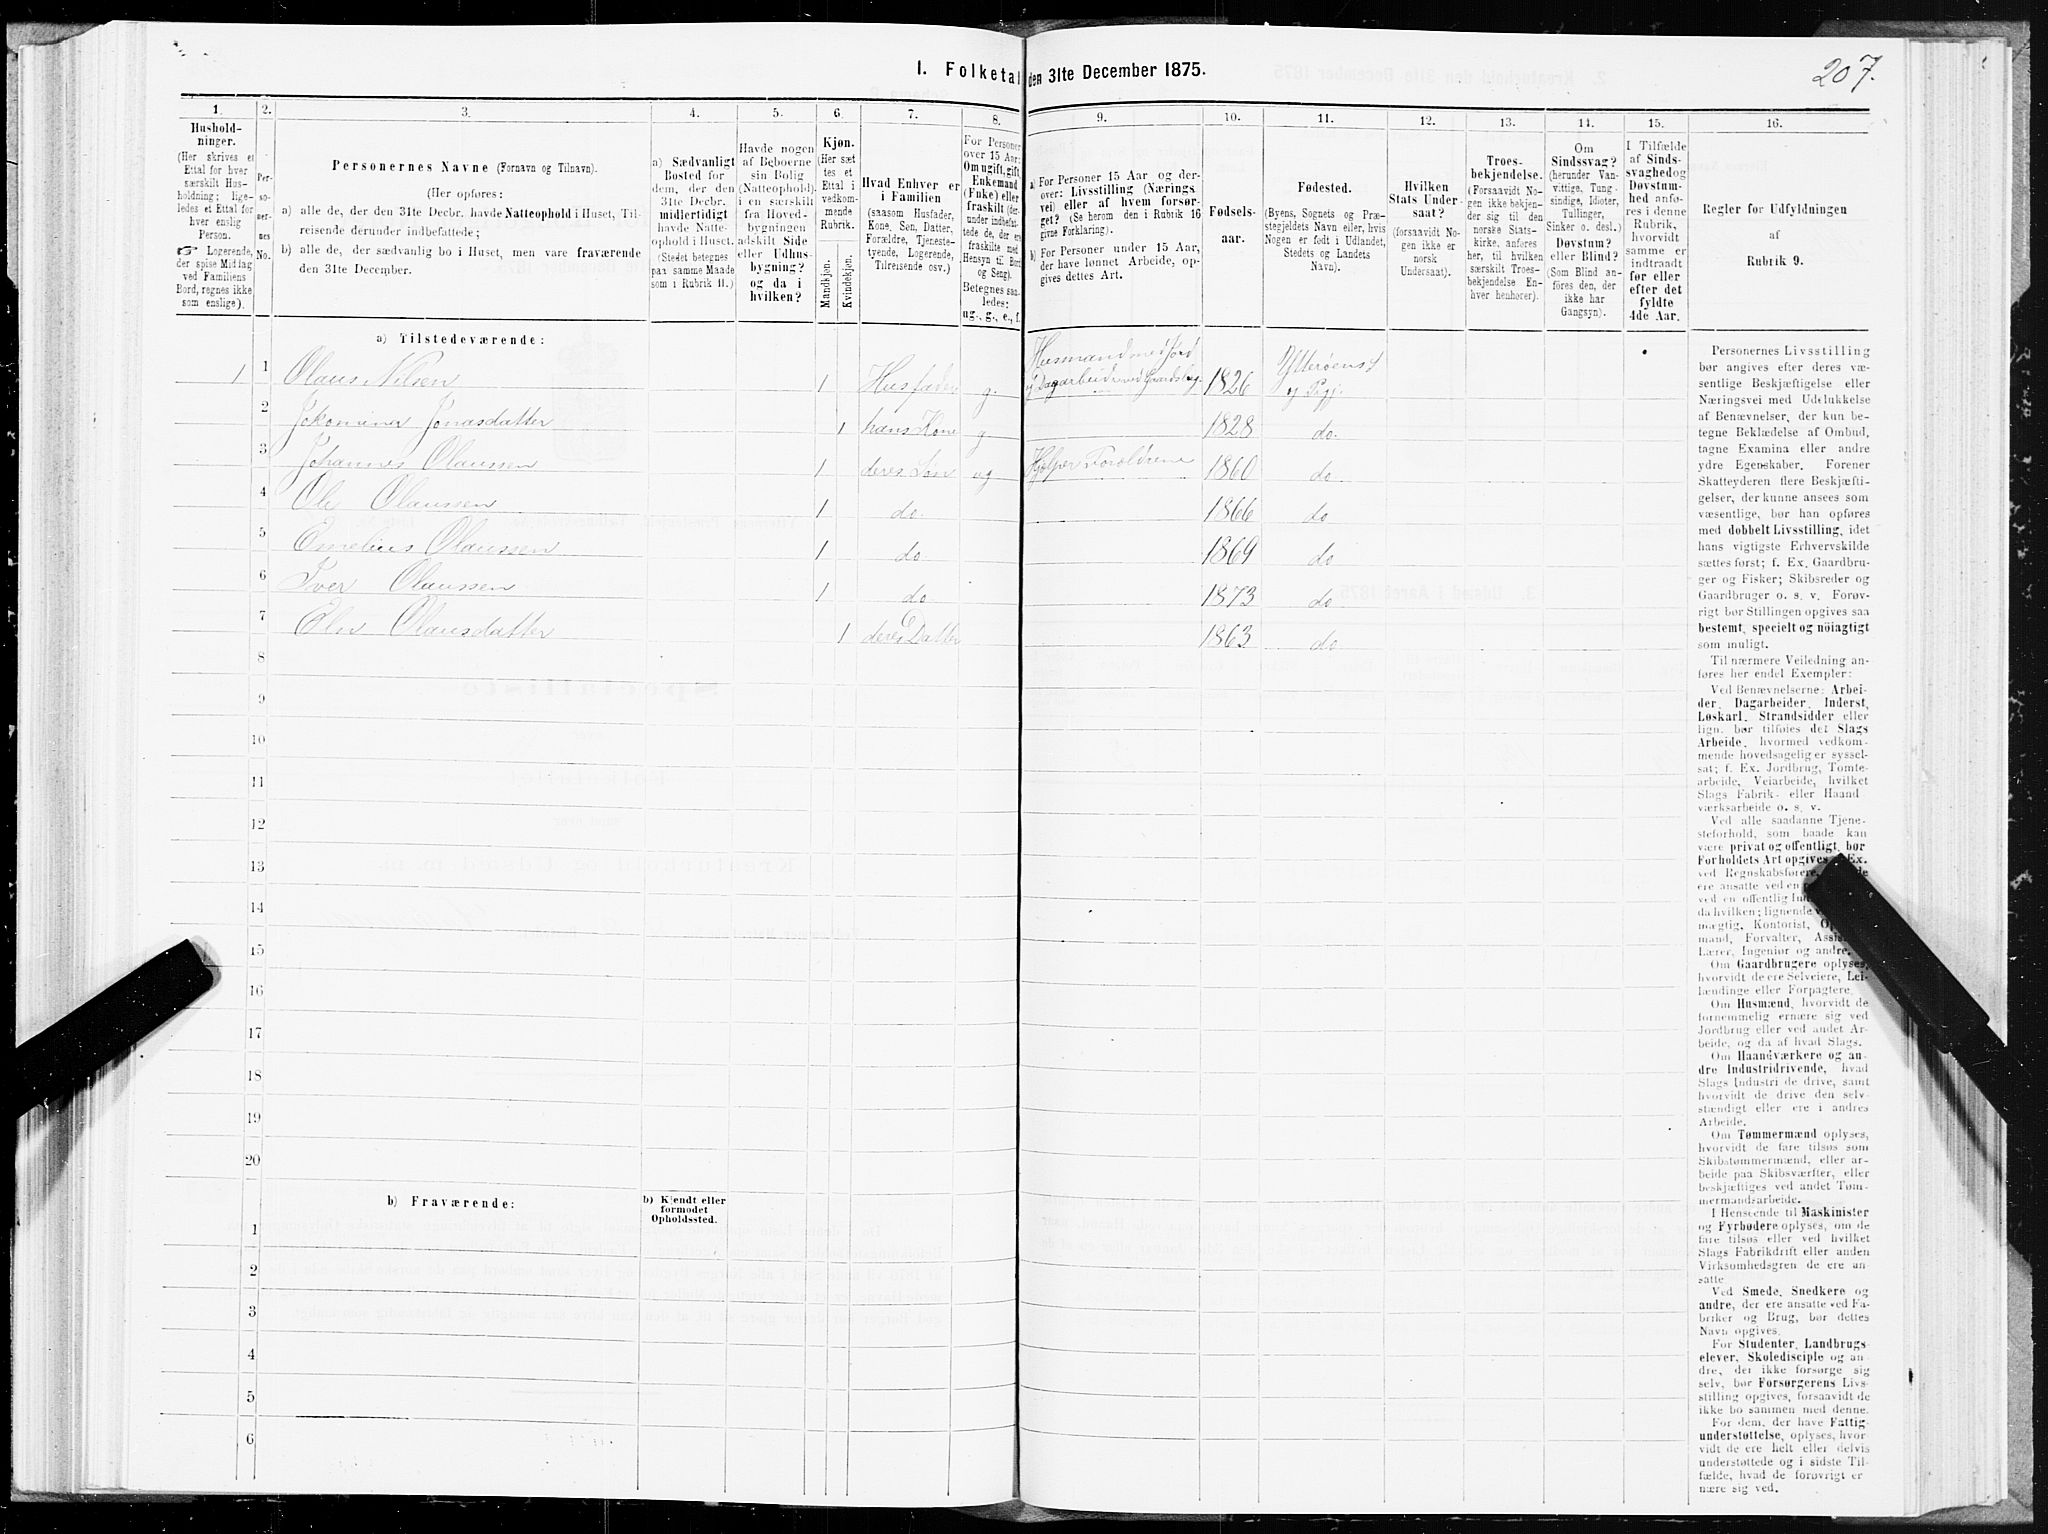 207.
I. Folketal den 31te December 1875.
1.
2.
3.
4.
5.
6.
7.
8.
9.
10.
11.
12.
13.
14.
15.
16.
Hushold-
ninger.
(Her skrives et
Ettal for hver
særskilt Hus-
holdning; lige-
ledes et Ettal for
hver enslig
Person.
☞ Logerende,
der spise Middag
ved Familiens
Bord, regnes ikke
som enslige).
Per-
so-
ner-
nes
No.
Personernes Navne (Fornavn og Tilnavn).
(Her opføres:
a) alle de, der den 31te Decbr. havde Natteophold i Huset, Til-
reisende derunder indbefattede;
b) alle de, der sædvanlig bo i Huset, men vare fraværende
den 31te December.
a) Sædvanligt
Bosted for
dem, der den
31te Decbr.
midlertidigt
havde Natte-
ophold i Huset.
(Stedet betegnes
paa samme Maade
som i Rubrik 11.)
Havde nogen
af Beboerne
sin Bolig
(Natteophold)
i en særskilt
fra Hoved-
bygningen
adskilt Side
eller Udhus-
bygning?
og da i
hvilken?
Kjøn.
(Her sæt
tes et
Ettal i
vedkom-
mende
Rubrik.
Mandkjøn.
Kvindekjøn.
Hvad Enhver er
i Familien
(saasom Husfader,
Kone, Søn, Datter,
Forældre, Tjeneste-
tyende, Logerende,
Tilreisende osv.)
For Personer
over 15 Aar:
Om ugift, gift,
Enkemand
(Enke) eller
fraskilt (der-
under indbefat-
tede de, der ere
fraskilte med
Hensyn til Bord
og Seng).
Betegnes saa-
ledes:
ug., g., e., f.
a) For Personer 15 Aar og der-
over: Livsstilling (Nærings
vei) eller af hvem forsør-
get? (Se herom den i Rubrik 16
givne Forklaring).
b) For Personer under 15 Aar,
der have lønnet Arbeide, op-
gives dettes Art.
Fødsels-
aar.
Fødested.
(Byens, Sognets og Præ-
stegjeldets Navn eller, hvis
Nogen er født i Udlandet,
Stedets og Landets
Navn).
Hvilken
Stats Under-
saat?
(forsaavidt No-
gen ikke er
norsk
Undersaat).
Troes-
bekjendelse.
(Forsaavidt No-
gen ikke bekjen-
der sig til den
norske Stats-
kirke, anføres
her, til hvilken
særskilt Troes-
bekjendelse En-
hver henhører).
Om
Sindssvag?
(herunder Van-
vittige, Tung-
sindige, Idioter,
Tullinger,
Sinker o. desl.)
Døvstum?
eller Blind?
(Som Blind an-
føres den, der
ikke har
Gangsyn).
I Tilfælde
af Sinds-
svaghed og
Døvstum-
hed anfø-
res i denne
Rubrik,
hvorvidt
samme er
indtraadt
før eller
efter det
fyldte
4de Aar.
Regler for Udfyldningen
af
Rubrik 9.
a) Tilstedeværende:
1 1 Olaus Nilsen 1 Husfader g. Husmand med Jord
og Dagarbeider ved Gaardsbrug 1826 Ytterøens S
og Pgj.
2 Jonasdatter 1 hans Kone g 1828 do.
3 Johannes Olaussen 1 deres Søn ug Hjelper Forældrene 1860 do
4 Ole Olaussen 1 do. 1866 do
5 Emelius Olaussen 1 do. 1869 do
6 Iver Olaussen 1 do. 1873 do
7 Olausdatter 1 deres Datter 1863 do
8
9
10
11
12
13
14
15
16
17
18
19
20
b) Fraværende:
b) Kjendt eller
formodet
Opholdssted.
1
2
3
4
5
6
Personernes Livsstilling
bør angives efter deres væ-
sentlige Beskjæftigelse eller
Næringsvei med Udelukkelse
af Benævnelser, der kun be-
tegne Beklædelse af Ombud,
tagne Examina eller andre
ydre Egenskaber. Forener
Skatteyderen flere Beskjæfti-
gelser, der kunne ansees som
væsentlige, bør han opføres
med dobbelt Livsstilling, idet
hans vigtigste Erhvervskilde
sættes først; f. Ex. Gaardbru-
ger og Fisker; Skibsreder og
Gaardbruger o. s. v. Forøv-
rigt bør Stillingen opgives saa
bestemt, specielt og nöiagtigt
som muligt.
Til nærmere Veiledning an-
føres her endel Exempler:
Ved Benævnelserne: Arbei-
der, Dagarbeider, Inderst,
Løskarl, Strandsidder eller
lign. bør tilføies det Slags
Arbeide, hvormed vedkom-
mende hovedsagelig er syssel-
sat; f. Ex. Jordbrug, Tomte-
arbeide, Veiarbeide, hvilket
Slags Fabrik- eller Haand
værksarbeide o. s. v.
Ved alle saadanne Tjene-
steforhold, som baade kan
være privat og offentligt, bør
Forholdets Art opgives, Ex.
ved Regnskabsførere,
ere ansatte ved en
ved en offentlig
da hvilken; lignende
mægtig, Kontorist,
mand, Forvalter,
Lærer, Ingeniør og andre.
Om Gaardbrugere oplyses,
hvorvidt de ere Selveiere, Lei-
lændinge eller Forpagtere.
Om Husmænd, hvorvidt de
fornemmelig ernære sig ved
Jordbrug eller ved andet Ar-
beide, og da af hvad Slags.
Om Haandværkere og an-
dre Industridrivende, hvad
Slags Industri de drive, samt
hvorvidt de drive den selv-
stændigt eller ere i andres
Arbeide.
Om Tømmermænd oplyses,
hvorvidt de fare tilsøs som
Skibstømmermænd, eller ar-
beide paa Skibsværfter, eller
beskjæftiges ved andet Tøm-
mermandsarbeide.
I Henseende til Maskinister
og Fyrbødere oplyses, om de
fare tilsøs eller ved hvilket
Slags Fabrikdrift eller anden
Virksomhedsgren de ere an-
satte
Ved Smede, Snedkere og
andre, der ere ansatte ved Fa-
briker og Brug, bør dettes
Navn opgives.
For Studenter, Landbrugs-
elever, Skoledisciple og an-
dre, der ikke forsørge sig
selv, bør Forsørgerens Livs-
stilling opgives, forsaavidt de
ikke bo sammen med denne.
For dem, der have Fattig-
understøttelse, oplyses, hvor-
vidt de ere helt eller delvis
understøttede og i sidste Til-
fælde, hvad de forøvrigt er
nære sig ved.